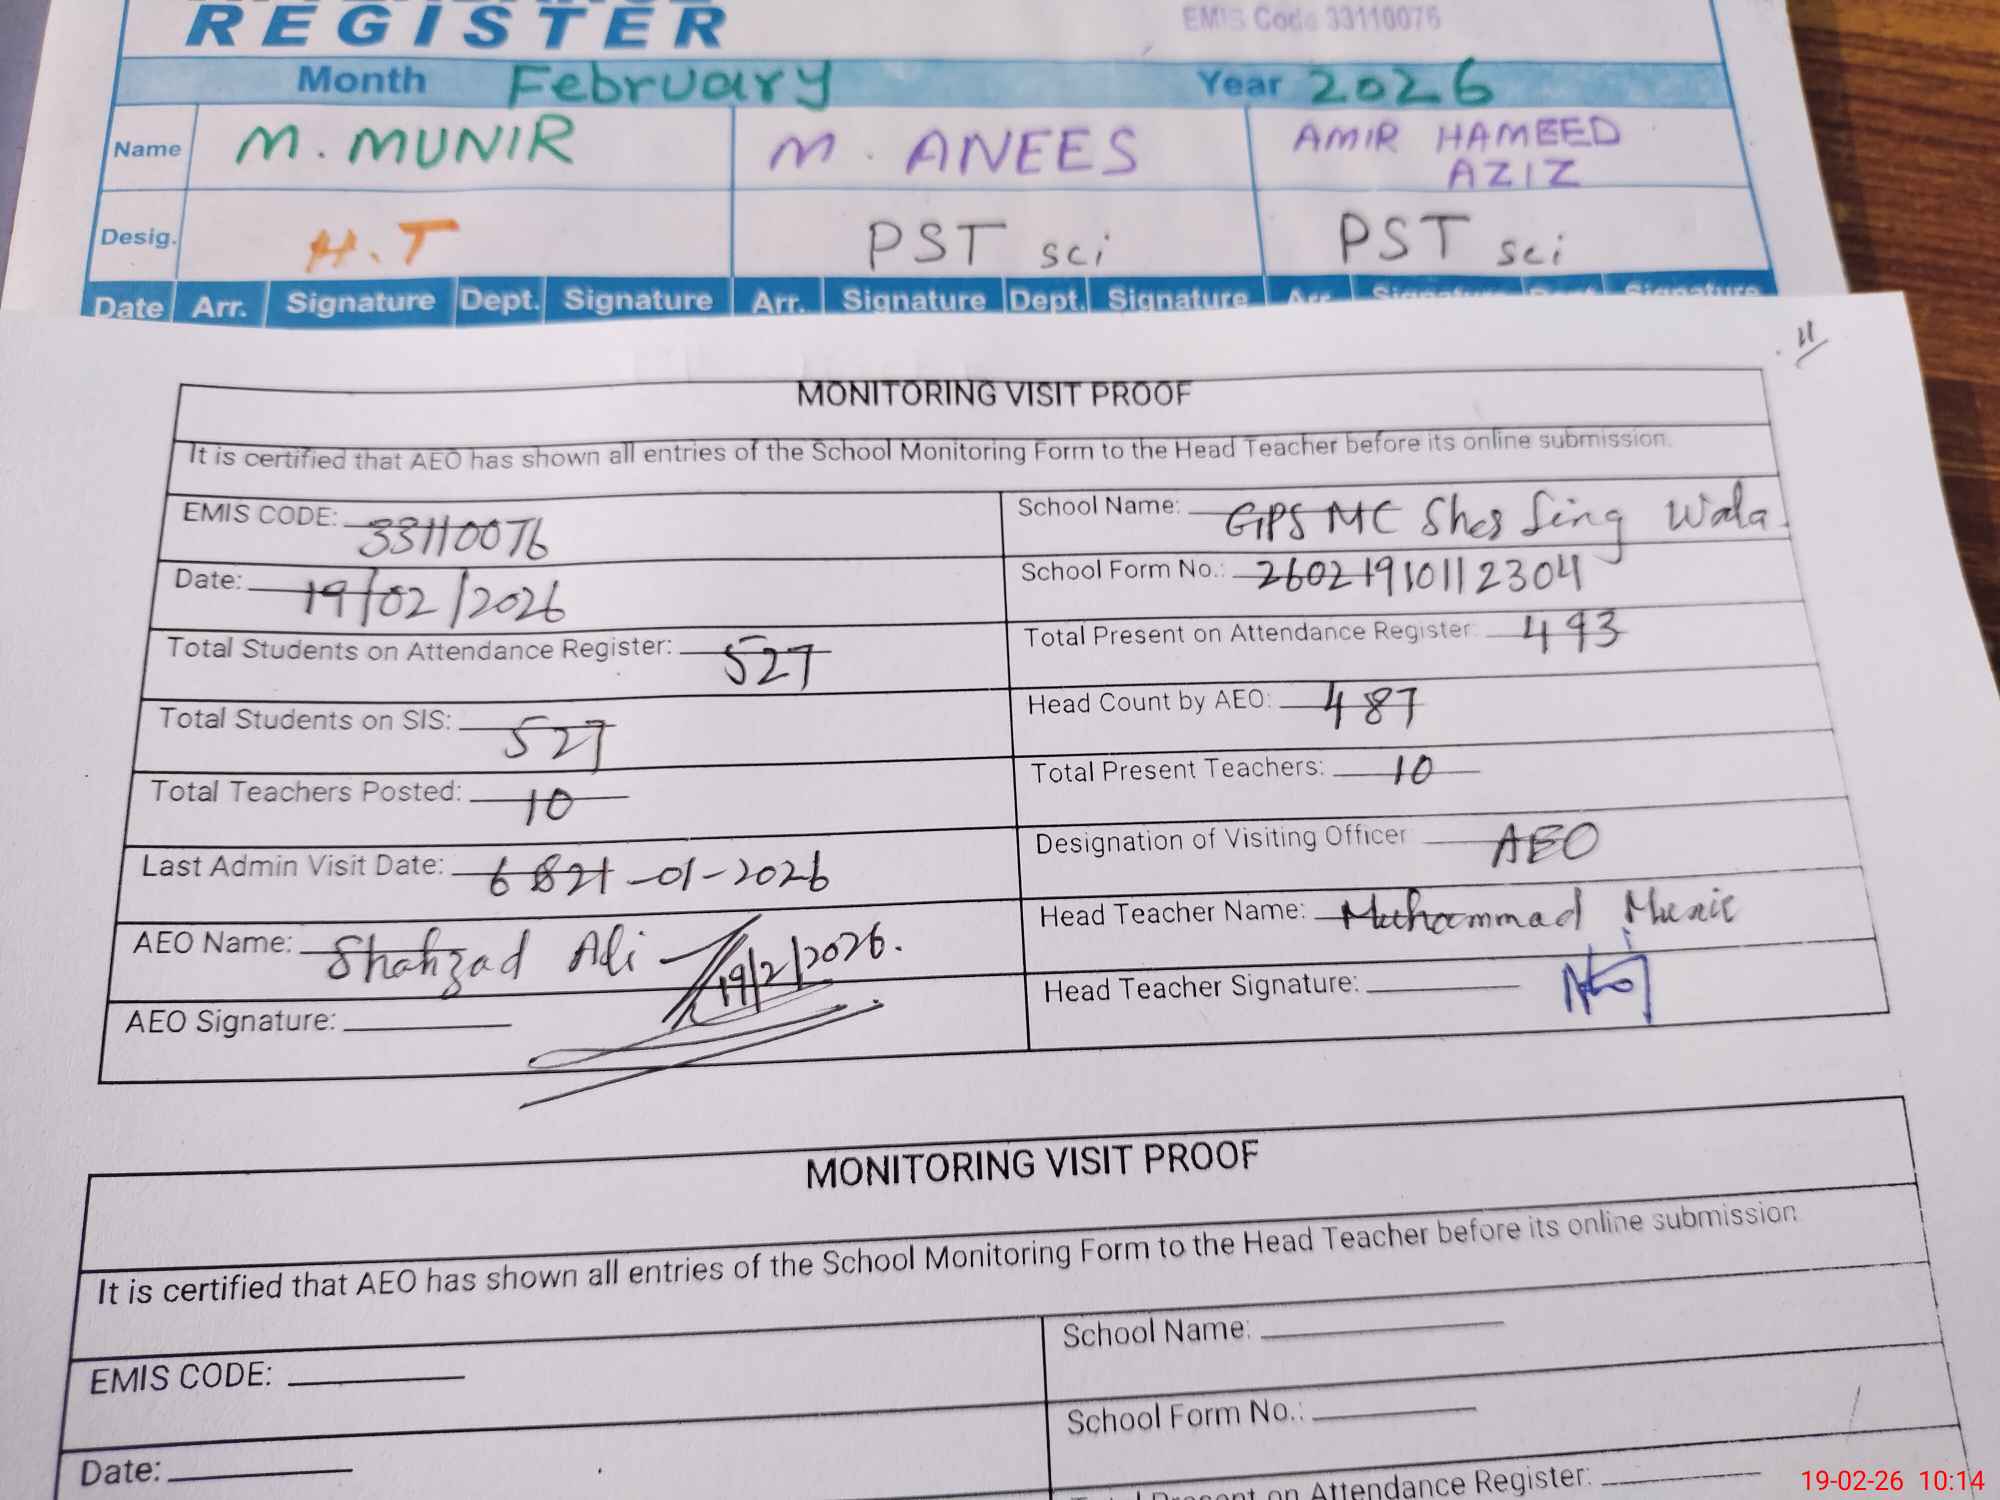 REGISTER
EMIS Code 33110076
Month February Year 2026
Name M. MUNIR M. ANEES AMIR HAMEED AZIZ
Desig. H.T PST sci PST sci
Date Arr. Signature Dept. Signature Arr. Signature Dept. Signature Arr. Signature Dept. Signature
11
MONITORING VISIT PROOF
It is certified that AEO has shown all entries of the School Monitoring Form to the Head Teacher before its online submission.
EMIS CODE: 33110076 School Name: GPS MC Sher Sing Wala
Date: 19/02/2026 School Form No.: 260219101112304
Total Students on Attendance Register: 527 Total Present on Attendance Register: 493
Total Students on SIS: 527 Head Count by AEO: 487
Total Teachers Posted: 10 Total Present Teachers: 10
Last Admin Visit Date: 21-01-2026 Designation of Visiting Officer AEO
AEO Name: Shahzad Ali 19/2/2026. Head Teacher Name: Muhammad Munir
AEO Signature: Head Teacher Signature:
MONITORING VISIT PROOF
It is certified that AEO has shown all entries of the School Monitoring Form to the Head Teacher before its online submission
EMIS CODE: School Name:
Date: School Form No.:
Present on Attendance Register:
19-02-26 10:14